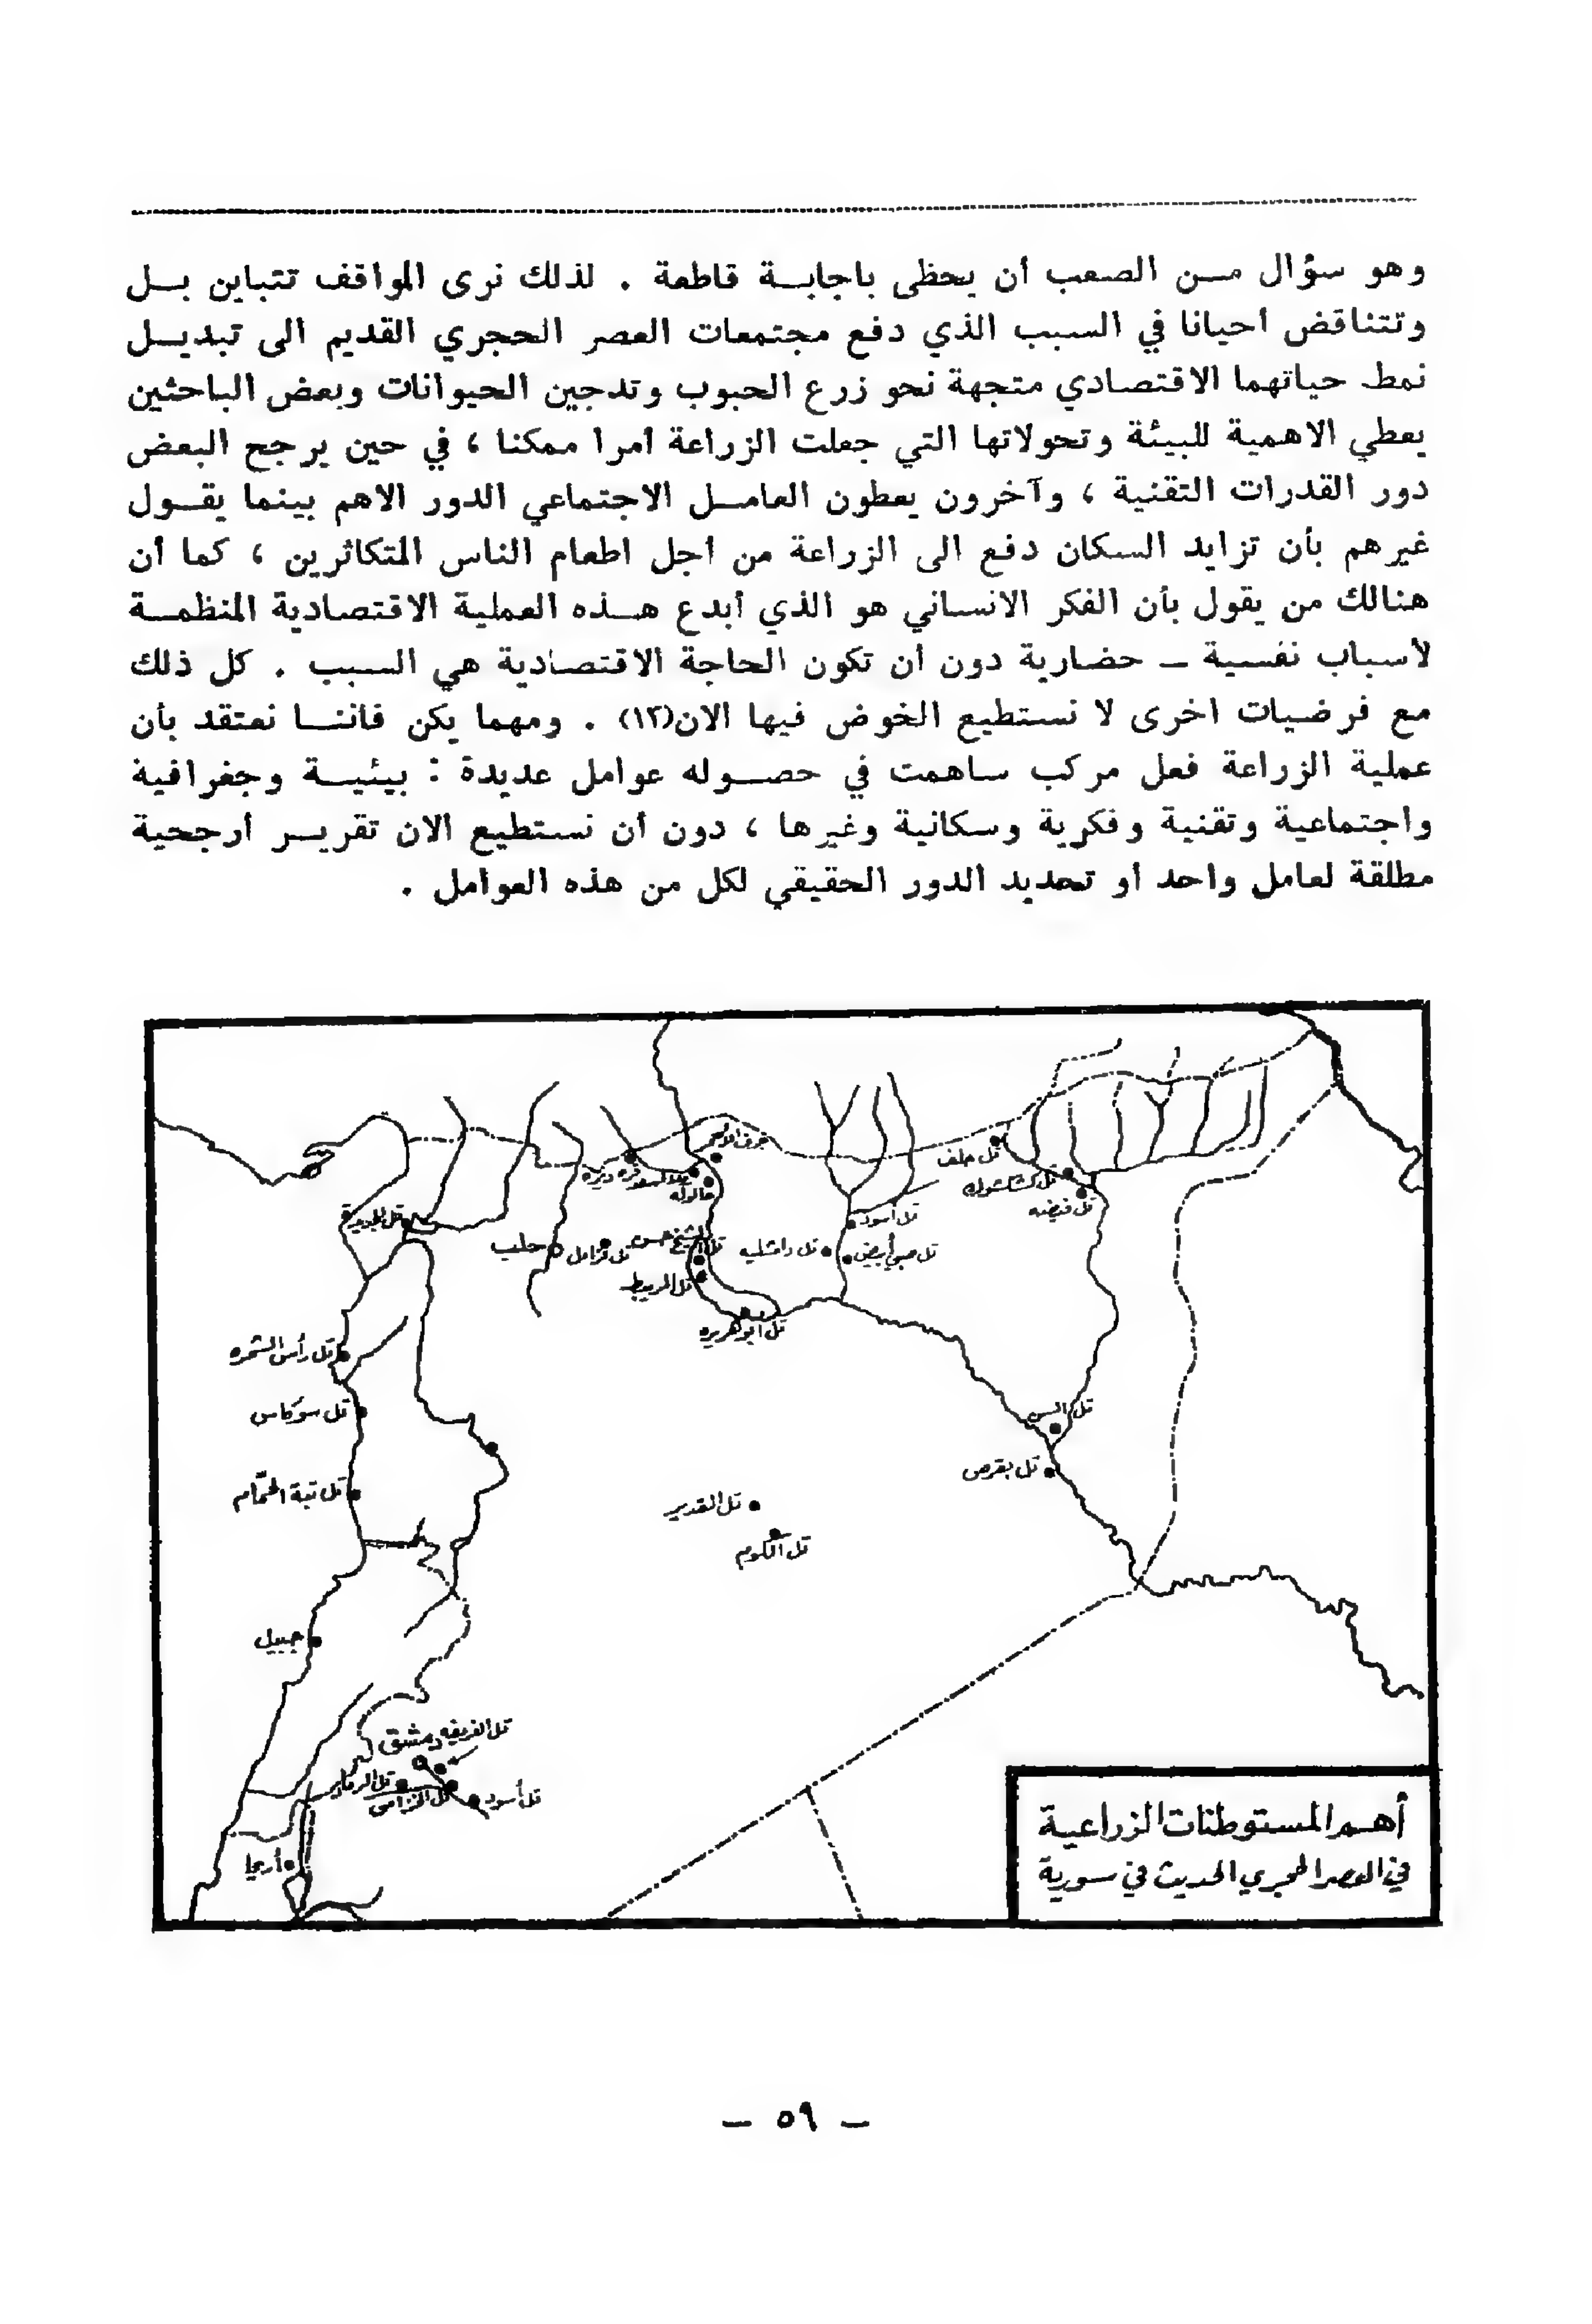 وهو سؤال مـن الصعب أن يحظى باجابـة قاطعة . لذلك نرى المواقف تتباين بـل
وتتناقض احيانا في السبب الذي دفع مجتمعات العصر الحجري القديم الى تبديـل
نمط حياتهما الاقتصادي متجهة نحو زرع الحبوب وتدجين الحيوانات وبعض الباحثين
يعطي الاهمية للبيئة وتحولاتها التي جعلت الزراعة أمرا ممكنا ، في حين يرجح البعض
دور القدرات التقنية ، وآخرون يعطون العامـل الاجتماعي الدور الاهم بينما يقـول
غيرهم بأن تزايد السكان دفع الى الزراعة من اجل اطعام الناس المتكاثرين ، كما أن
هنالك من يقول بأن الفكر الانساني هو الذي أبدع هـذه العملية الاقتصادية المنظمـة
لأسباب نفسية ــ حضارية دون أن تكون الحاجة الاقتصادية هي السبب . كل ذلك
مع فرضيات اخرى لا نستطيع الخوض فيها الان(١٣) . ومهما يكن فاننـا نعتقد بأن
عملية الزراعة فعل مركب ساهمت في حصـوله عوامل عديدة : بيئيـة وجغرافية
واجتماعية وتقنية وفكرية وسكانية وغيرها ، دون أن نستطيع الان تقريـر أرجحية
مطلقة لعامل واحد أو تحديد الدور الحقيقي لكل من هذه العوامل .
تل حلف
تل كشكشوك
تل فيضه
حالوله
تل الجديدة
تل أسود
حلب
تل قرامل
تل دامشليه
تل صبي أبيض
تل المريبط
تل ابو هريره
تل رأس الشمره
تل سوكاس
تل السن
تل بقرص
تل تبة الحمّام
تل القدير
تل الكوم
جبيل
تل الغريفه
دمشق
تل الرماد
تل الخزامى
تل أسود
أريحا
أهـم المستوطنات الزراعية
في العصر الحجري الحديث في سورية
ــ ٥٩ ــ